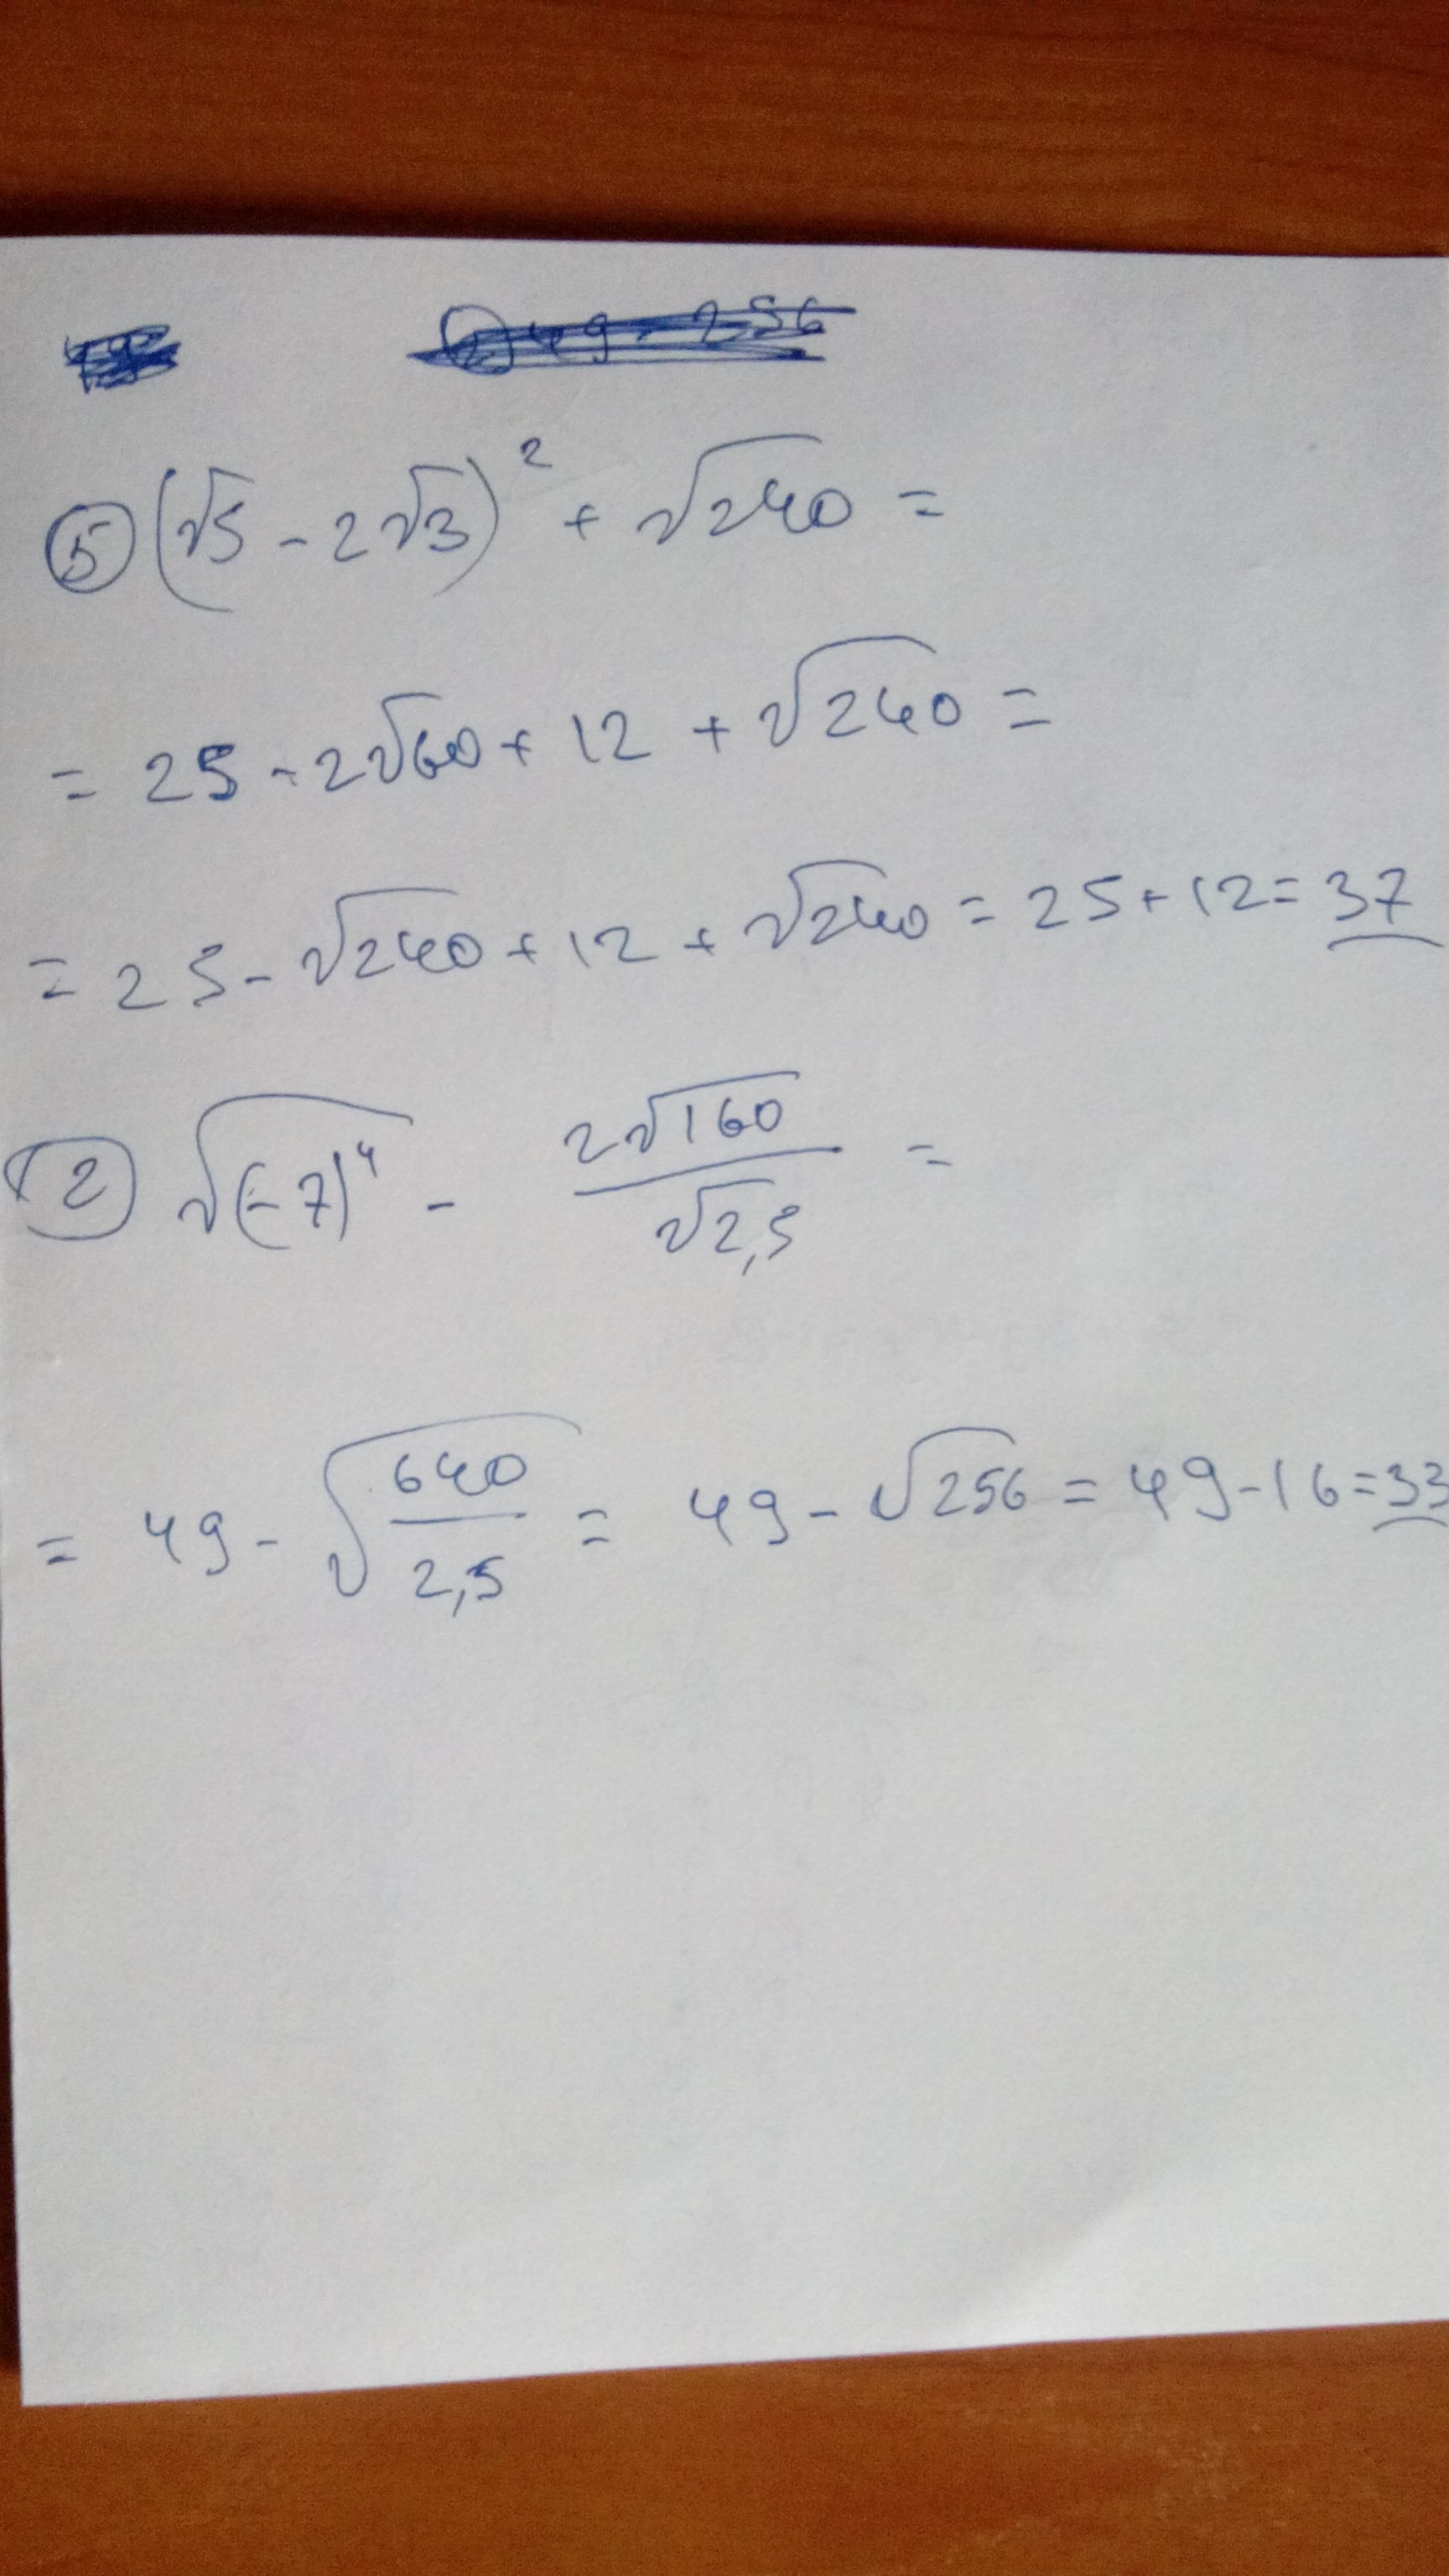 ⑤ (√5 - 2√3)² + √240 =
= 25 - 2√60 + 12 + √240 =
= 25 - √240 + 12 + √240 = 25 + 12 = 37
② √(-7)⁴ - 2√160 / √2,5 =
= 49 - √640/2,5 = 49 - √256 = 49 - 16 = 33